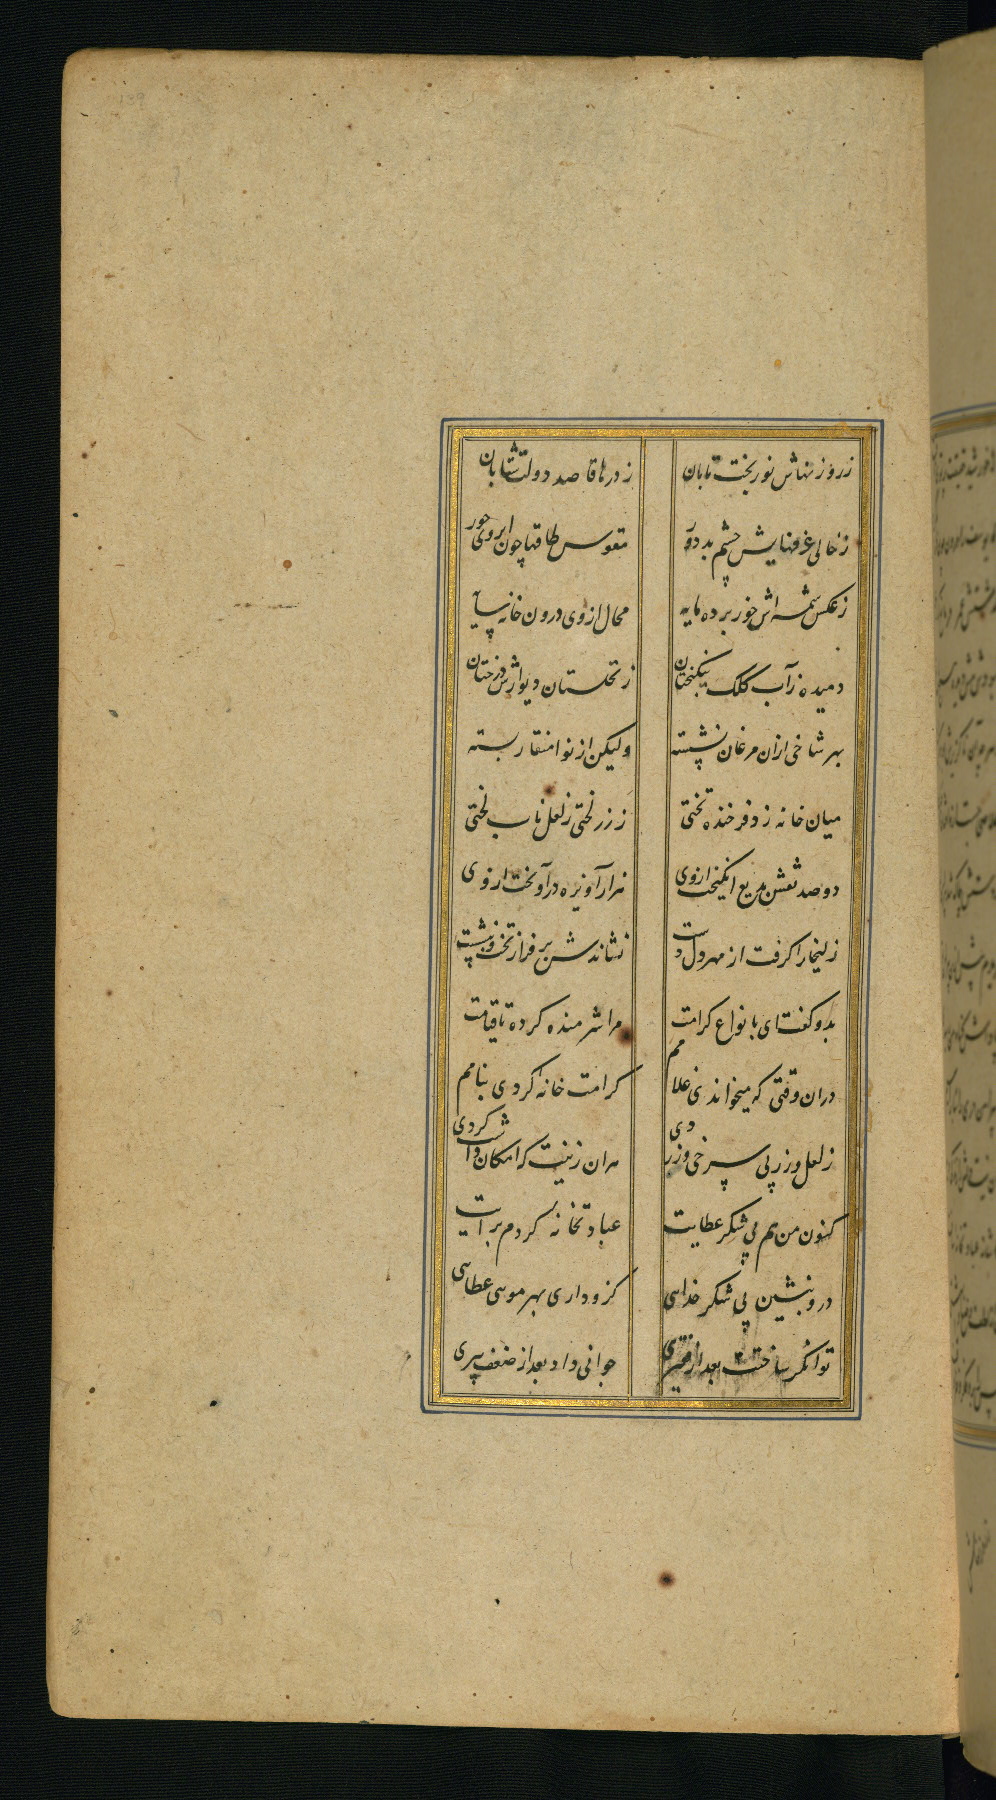 ز روزنهاش نور بخت تابان ز درها قاصد دولت شتابان
ز خالی غرفهایش چشم بد دور مقوس طاقها چون ابروی حور
ز عکس شمسه اش خور برده مایه محال از وی درون خانه سایه
دمیده ز آب کلک نیکبختان ز نخلستان دیوارش درختان
بهر شاخی ازان مرغان نشسته ولیکن از نوا منقار بسته
میان خانه زد فرخنده تختی ز زر لختی ز لعل ناب لختی
دو صد نقش بدیع انکیخت از وی هزار آویزه در آویخت از وی
زلیخا را کرفت از مهر دل دست نشاندش بر فراز تخت و بنشست
بدو کفت ای بانواع کرامت مرا شرمنده کرده تا قیامت
دران وقتی که میخواندی غلامم کرامت خانه کردی بنامم
ز لعل و زر پی سرخی و زردی مران زینت که امکان داشت کردی
کنون من هم پی شکر عطایت عبادتخانه کردم برایت
درو بنشین پی شکر خدایی کزو داری بهر مویی عطایی
توانکر ساخت بعد از فقیری جوانی داد بعد از ضعف پیری